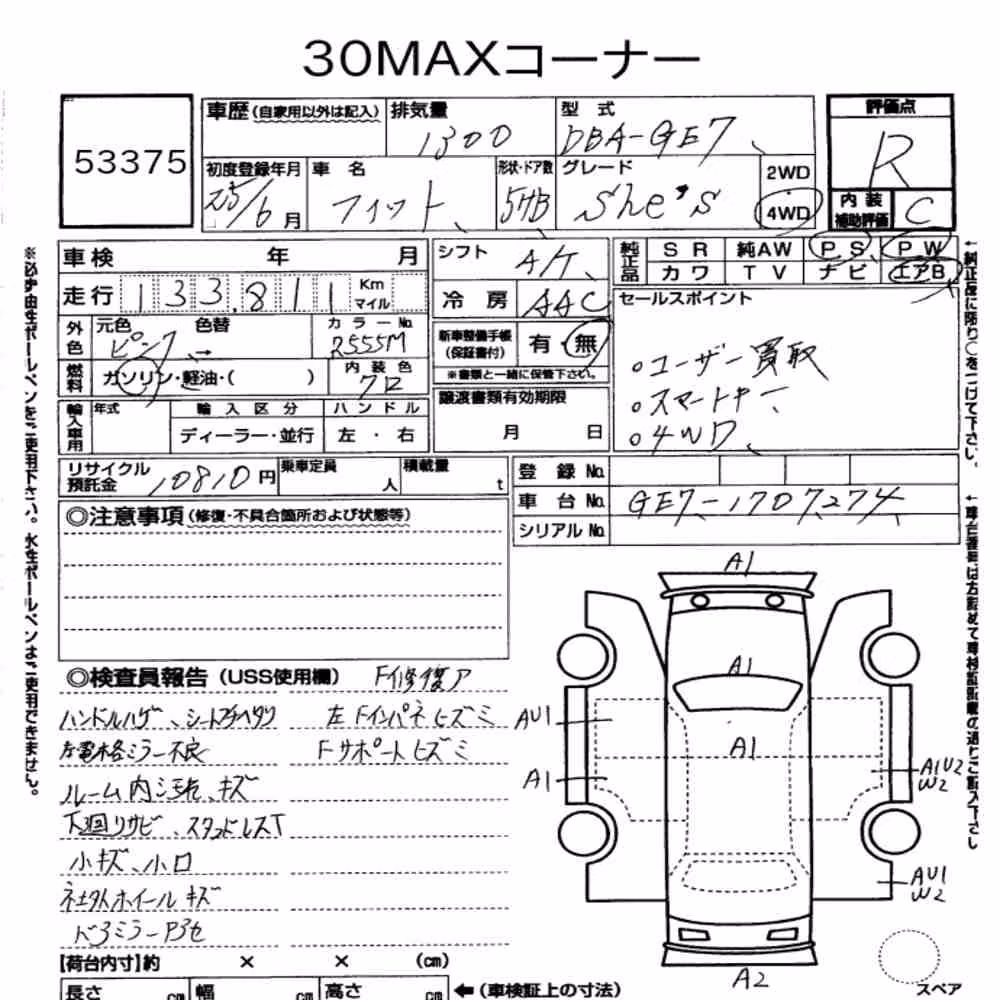 30MAXコーナー
53375
車歴(自家用以外は記入)
排気量
1300
型式
DBA-GE7
評価点
R
初度登録年月
25/6月
車名
フィット
形状・ドア数
5HB
グレード
She's
2WD
4WD
内装補助評価
C
車検 年 月
シフト
A/T
純正品
SR 純AW PS PW
カワ TV ナビ エアB
走行 133,811 Km マイル
冷房
AAC
セールスポイント
外色
元色 色替 カラーNo.
ピンク → R555M
新車整備手帳(保証書付)
有・無
※書類と一緒に保管下さい。
。ユーザー買取
。スマートキー
。4WD
燃料
ガソリン・軽油・( )
内装色
クロ
譲渡書類有効期限
月 日
輸入車用
年式 輸入区分 ハンドル
ディーラー・並行 左・右
リサイクル預託金
10810円
乗車定員 人
積載量 t
登録No.
車台No.
GE7-1707274
シリアルNo.
◎注意事項(修復・不具合箇所および状態等)
◎検査員報告(USS使用欄) F修復ア
ハンドルハゲ、シート 左FインパネヒズミFサポートヒズミ
左電格ミラー不良
ルーム内汚れ、キズ
下廻りサビ、スタッドレスT
小キズ、小凹
社外ホイールキズ
ドアミラー
A1
A1
AU1
A1
A1
A1U2
W2
AU1
W2
A2
スペア
【荷台内寸】約 × × (cm)
長さ cm 幅 cm 高さ cm ←(車検証上の寸法)
※必ず油性ボールペンをご使用下さい。水性ボールペンはご使用できません。
←純正品に限り○をつけて下さい。
←車台番号は左詰めで車検証記載の通りご記入下さい